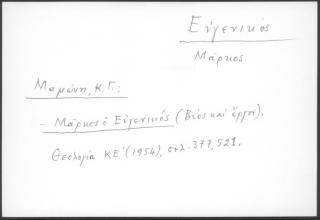 Εὐγενικός
Μάρκος.
Μαμώνη, Κ. Γ.:
– Μάρκος ὁ Εὐγενικός (Βίος καὶ ἔργον).
Θεολογία ΚΕ' (1954), σελ. 377, 521.